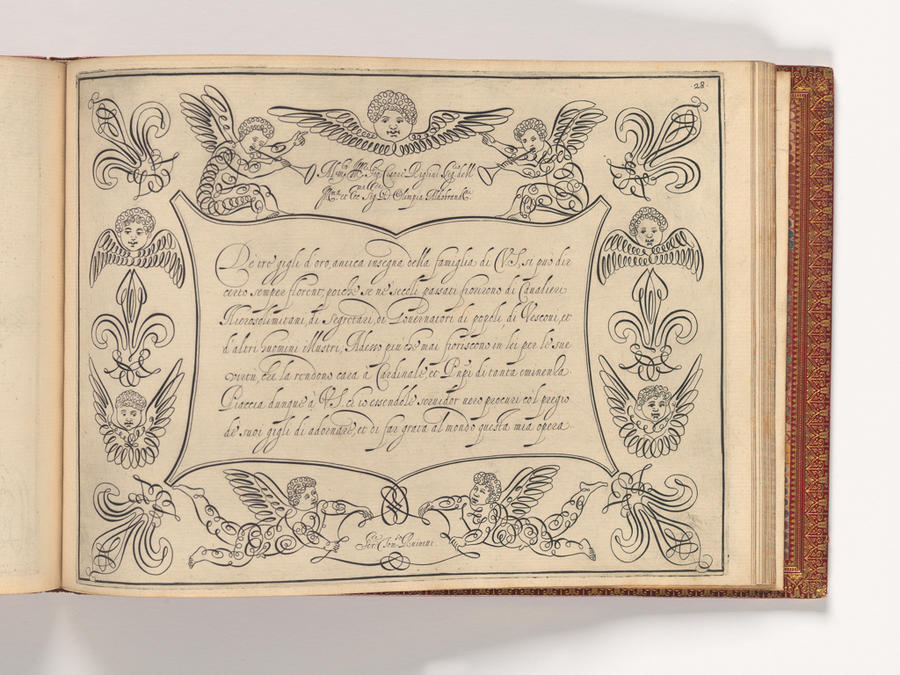 ·28·
Sig. Cesare Righini Sig. dell
et Ecc. Sig. D. Olimpia Aldobrand.
De tre gigli d'oro, antica insegna della famiglia di V.S. si puo dir
certo sempre florent, poiche se ne secoli passati fiorirono di Cavalieri
Hierosolimitani, di Segretarii, di Governatori di popoli, di Vesconi, et
d'altri huomini Illustri, Adesso piu che mai fioriscono in lei per le sue
virtu, che la rendono cara a Cardinale, et Prnpi di tanta eminenza
Piaccia dunque à V.S. ch'io essendole servidor vero procuri co'l pregio
de suoi gigli di adornare, et di far grata al mondo questa mia opera.
Ser. Tom. Ruinetti.